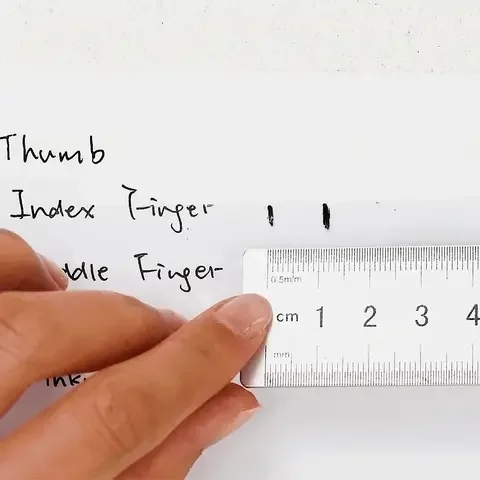 Thumb
Index Finger
ddle Finger
0.5m/m
cm 1 2 3 4
mm
ink